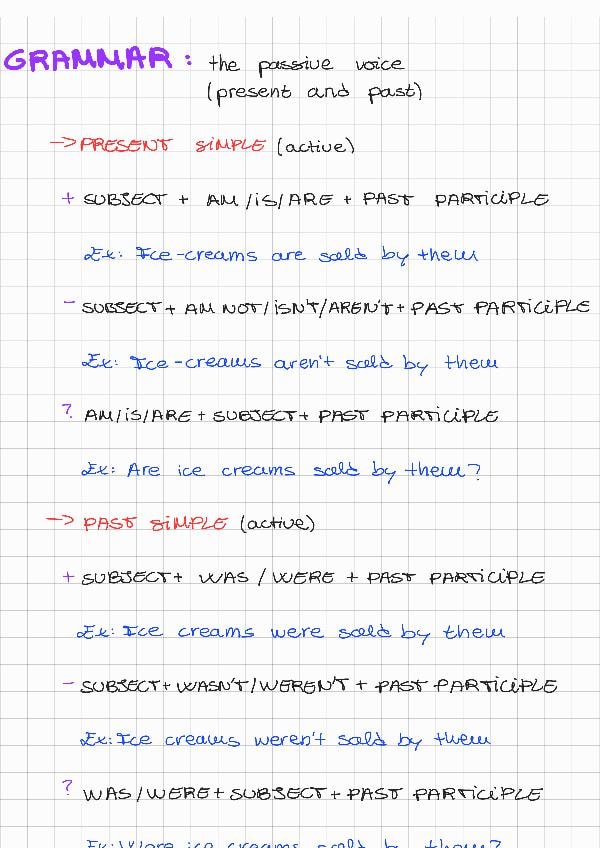 GRAMMAR: the passive voice
(present and past)
→ PRESENT SIMPLE (active)
+ SUBJECT + AM/IS/ARE + PAST PARTICIPLE
Ex: Ice-creams are sold by them
- SUBJECT + AM NOT/ISN'T/AREN'T + PAST PARTICIPLE
Ex: Ice-creams aren't sold by them
? AM/IS/ARE + SUBJECT + PAST PARTICIPLE
Ex: Are ice creams sold by them?
→ PAST SIMPLE (active)
+ SUBJECT + WAS / WERE + PAST PARTICIPLE
Ex: Ice creams were sold by them
- SUBJECT + WASN'T/WEREN'T + PAST PARTICIPLE
Ex: Ice creams weren't sold by them
? WAS/WERE + SUBJECT + PAST PARTICIPLE
Ex: Were ice creams sold by them?